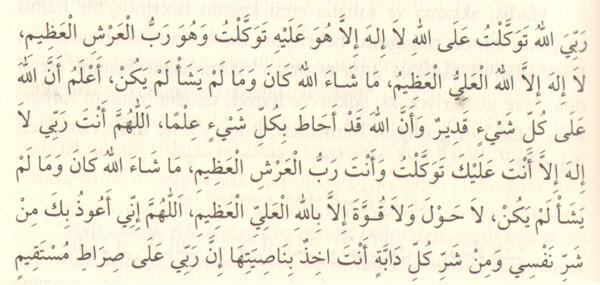 رَبِّيَ اللهُ تَوَكَّلْتُ عَلَى اللهِ لا إلهَ إلاَّ هُوَ عَلَيْهِ تَوَكَّلْتُ وَهُوَ رَبُّ الْعَرْشِ الْعَظِيمِ،
لاَ إلهَ إلاَّ اللهُ الْعَلِيُّ الْعَظِيمُ، مَا شـاءَ اللهُ كان وَمَا لَمْ يَشَأْ لَمْ يَكُنْ، أَعْلَمُ أَنَّ اللهَ
عَلَى كُلِّ شَيْءٍ قَدِيرٌ وَأَنَّ اللهَ قَدْ أَحَاطَ بِكل شَيْءٍ عِلمًا، اَللّهُمَّ أَنْتَ رَبِّي لاَ
إلهَ إلاَّ أَنْتَ عَلَيْكَ تَوَكَّلْتُ وَأَنْتَ رَبُّ الْعَرْشِ الْعَظِيمِ، مَا شاءَ اللهُ كَانَ وَمَا لَمْ
يَشَأْ لَمْ يَكُنْ، لاَ حَوْلَ وَلاَ قُوَّةَ إلاَّ بِاللهِ الْعَلِيِّ الْعَظِيمِ، اَللّهُمَّ إنِّي أَعُوذُ بِكَ مِنْ
شَرِّ نَفْسِي وَمِنْ شَرِّ كُلِّ دَابَّةٍ أَنْتَ اخِذٌ بِنَاصِيَتِها إنَّ رَبِّي عَلَى صِرَاطٍ مُسْتَقِيمٍ